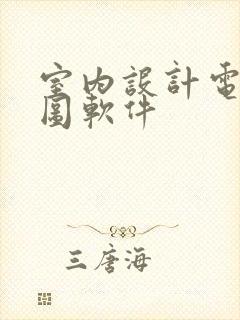 室内設計電
圖軟件
三唐海